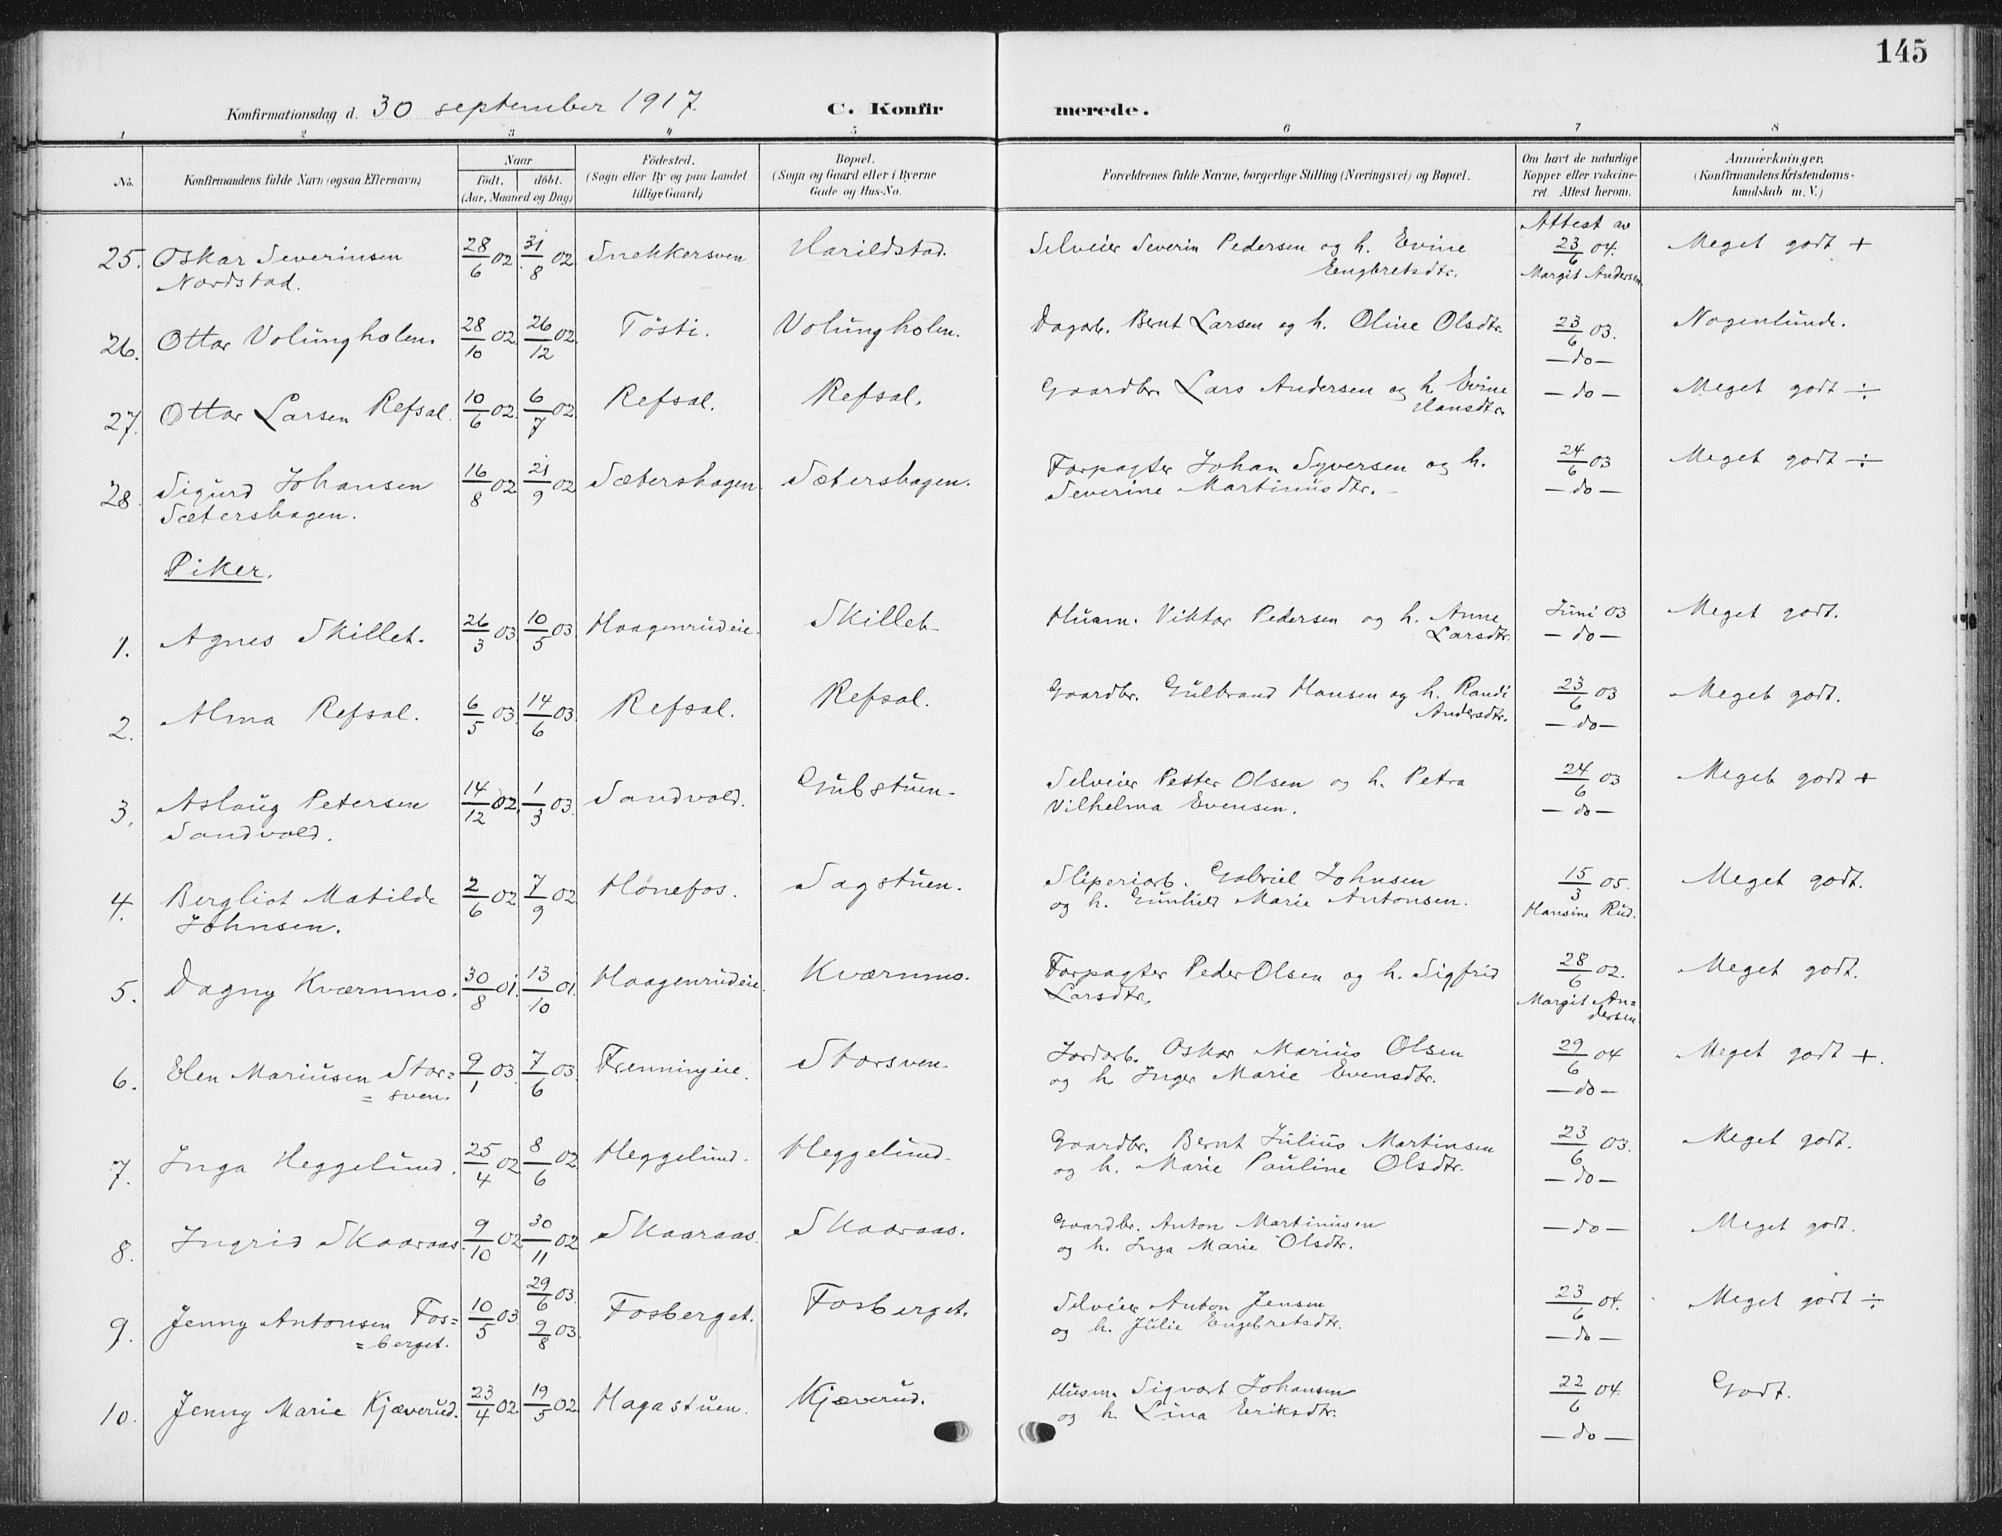 145
Konfirmationsdag d. 30 september 1917. C. Konfirmerede.
1 2 3 4 5 6 7 8
No. Konfirmandens fulde Navn (ogsaa Efternavn) Naar Födt. döbt. (Aar, Maaned og Dag) Födested. (Sogn eller By og paa Landet tillige Gaard) Bopæl. (Sogn og Gaard eller i Byerne Gade og Hus-No. Forældrenes fulde Navne, borgerlige Stilling (Næringsvei) og Bopæl. Om havt de naturlige Kopper eller vakcineret. Attest herom. Anmærkninger. (Konfirmandens Kristendomskundskab m. V.)
25. Oskar Severinsen Nordstad. 28/6 02 31/8 02 Snekkersven Harildstad. Selveier Severin Pedersen og h. Evine Engbretsdtr. Attest av 23/6 04. Margit Andersen Meget godt +
26. Ottar Volungholen. 28/10 02 26/12 02 Tösti. Volungholen. Dagarb. Bernt Larsen og h. Oline Olsdtr. 23/6 03. —do— Nogenlunde.
27. Ottar Larsen Refsal. 10/6 02 6/7 02 Refsal. Refsal. Gaardbr. Lars Andersen og h. Evine Hansdtr. —do— Meget godt ÷
28. Sigurd Johansen Sætershagen. 16/8 02 21/9 02 Sætershagen Sætershagen. Forpagter Johan Syversen og h. Severine Martinusdtr. 24/6 03 —do— Meget godt ÷
Piker.
1. Agnes Skillet. 26/3 03 10/5 03 Haagenrudeie. Skillet Husm. Viktor Pedersen og h. Anne Larsdtr. Juni 03 —do— Meget godt.
2. Alma Refsal. 6/5 03. 14/6 03. Refsal. Refsal. Gaardbr. Gulbrand Hansen og h. Randi Andersdtr. 23/6 03 —do— Meget godt.
3. Aslaug Petersen Sandvold. 14/12 02. 1/3 03. Sandvold. Gubstuen. Selveier Petter Olsen og h. Petra Vilhelma Evensen. 24/6 03 —do— Meget godt +
4. Bergliot Matilde Johnsen. 2/6 02 7/9 02 Hönefos. Sagstuen. Sliperiarb. Gabriel Johnsen og h. Gunhild Marie Antonsen. 15/3 05. Hansine Rud. Meget godt.
5. Dagny Kværnmo. 30/8 01. 13/10 01. Haagenrudeie. Kværnmo. Forpagter Peder Olsen og h. Sigfrid Larsdtr. 28/6 02. Margit Andersen Meget godt.
6. Elen Mariusen Storsven. 9/1 03. 7/6 03. Frenningeie. Storsven. Jordarb. Oskar Marius Olsen og h. Inger Marie Evensdtr. 29/6 04 —do— Meget godt +.
7. Inga Heggelund. 25/4 02 8/6 02. Heggelund. Heggelund. Gaardbr. Bernt Julius Martinsen og h. Marie Pauline Olsdtr. 23/6 03. —do— Meget godt.
8. Ingrid Skaaraas. 9/10 02 30/11 02 Skaaraas. Skaaraas. Gaardbr. Anton Martinusen og h. Inga Marie Olsdtr. —do— Meget godt.
9. Jenny Antonsen Fosberget. 10/5 03 29/6 03. 9/8 03. Fosberget. Fosberget. Selveier Anton Jensen og h. Julie Engebretsdtr. 23/6 04. —do— Meget godt ÷
10. Jenny Marie Kjæverud. 23/4 02 19/5 02 Hagastuen. Kjæverud. Husm. Sigvart Johansen og h. Lina Eriksdtr. 22/6 04. —do— Godt.